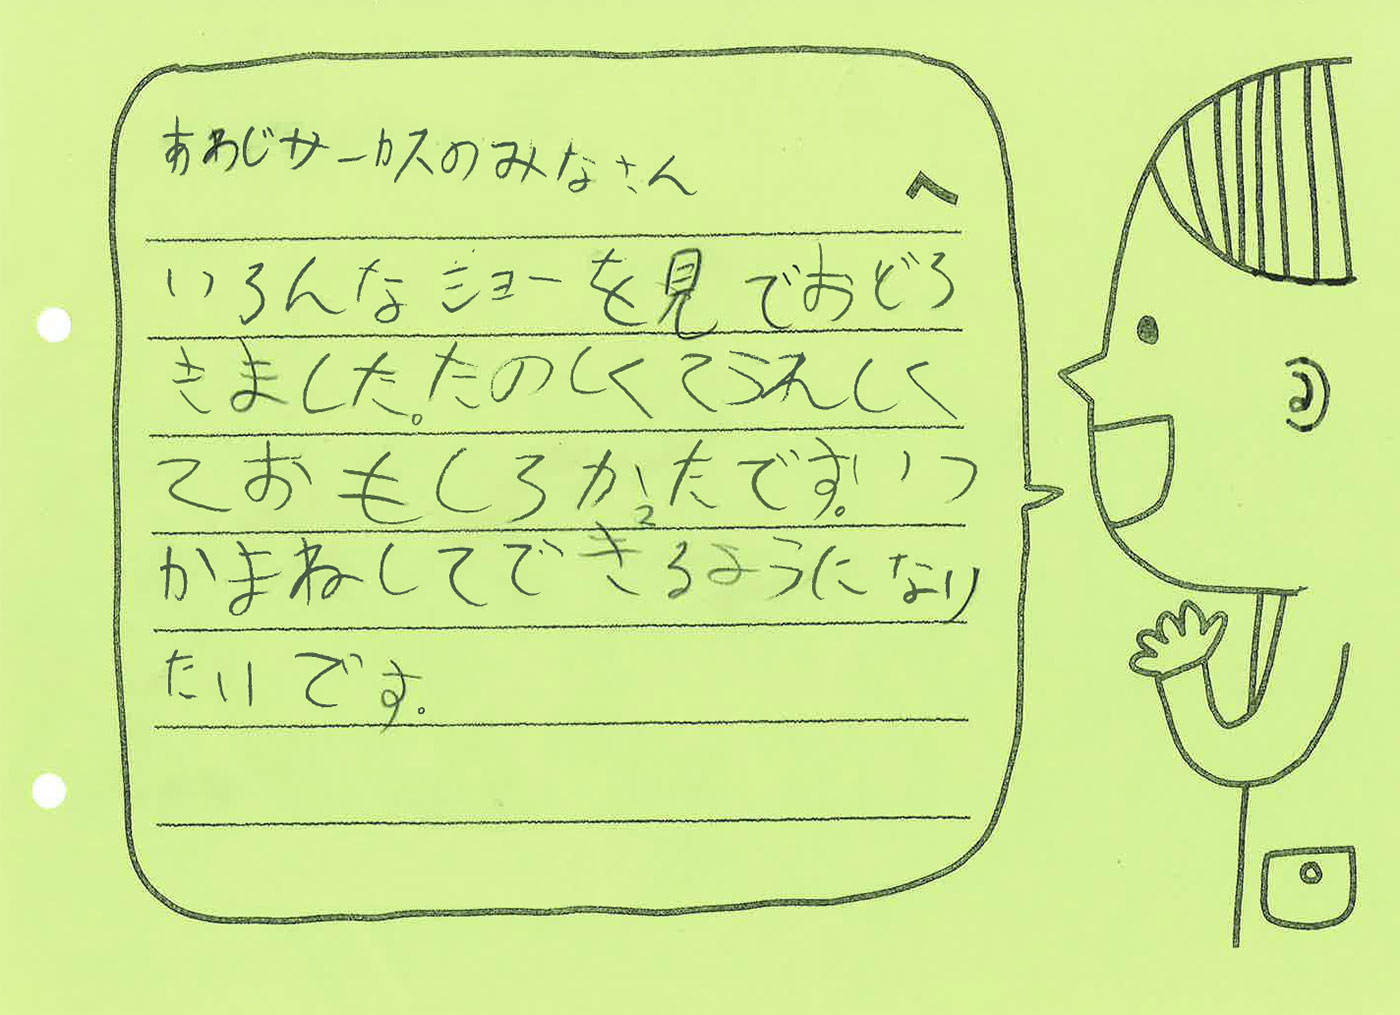 あわじサーカスのみなさん へ
いろんなショーを見ておどろ
きました。たのしくてうれしく
ておもしろかったです。いつ
かまねしてできるようになり
たいです。